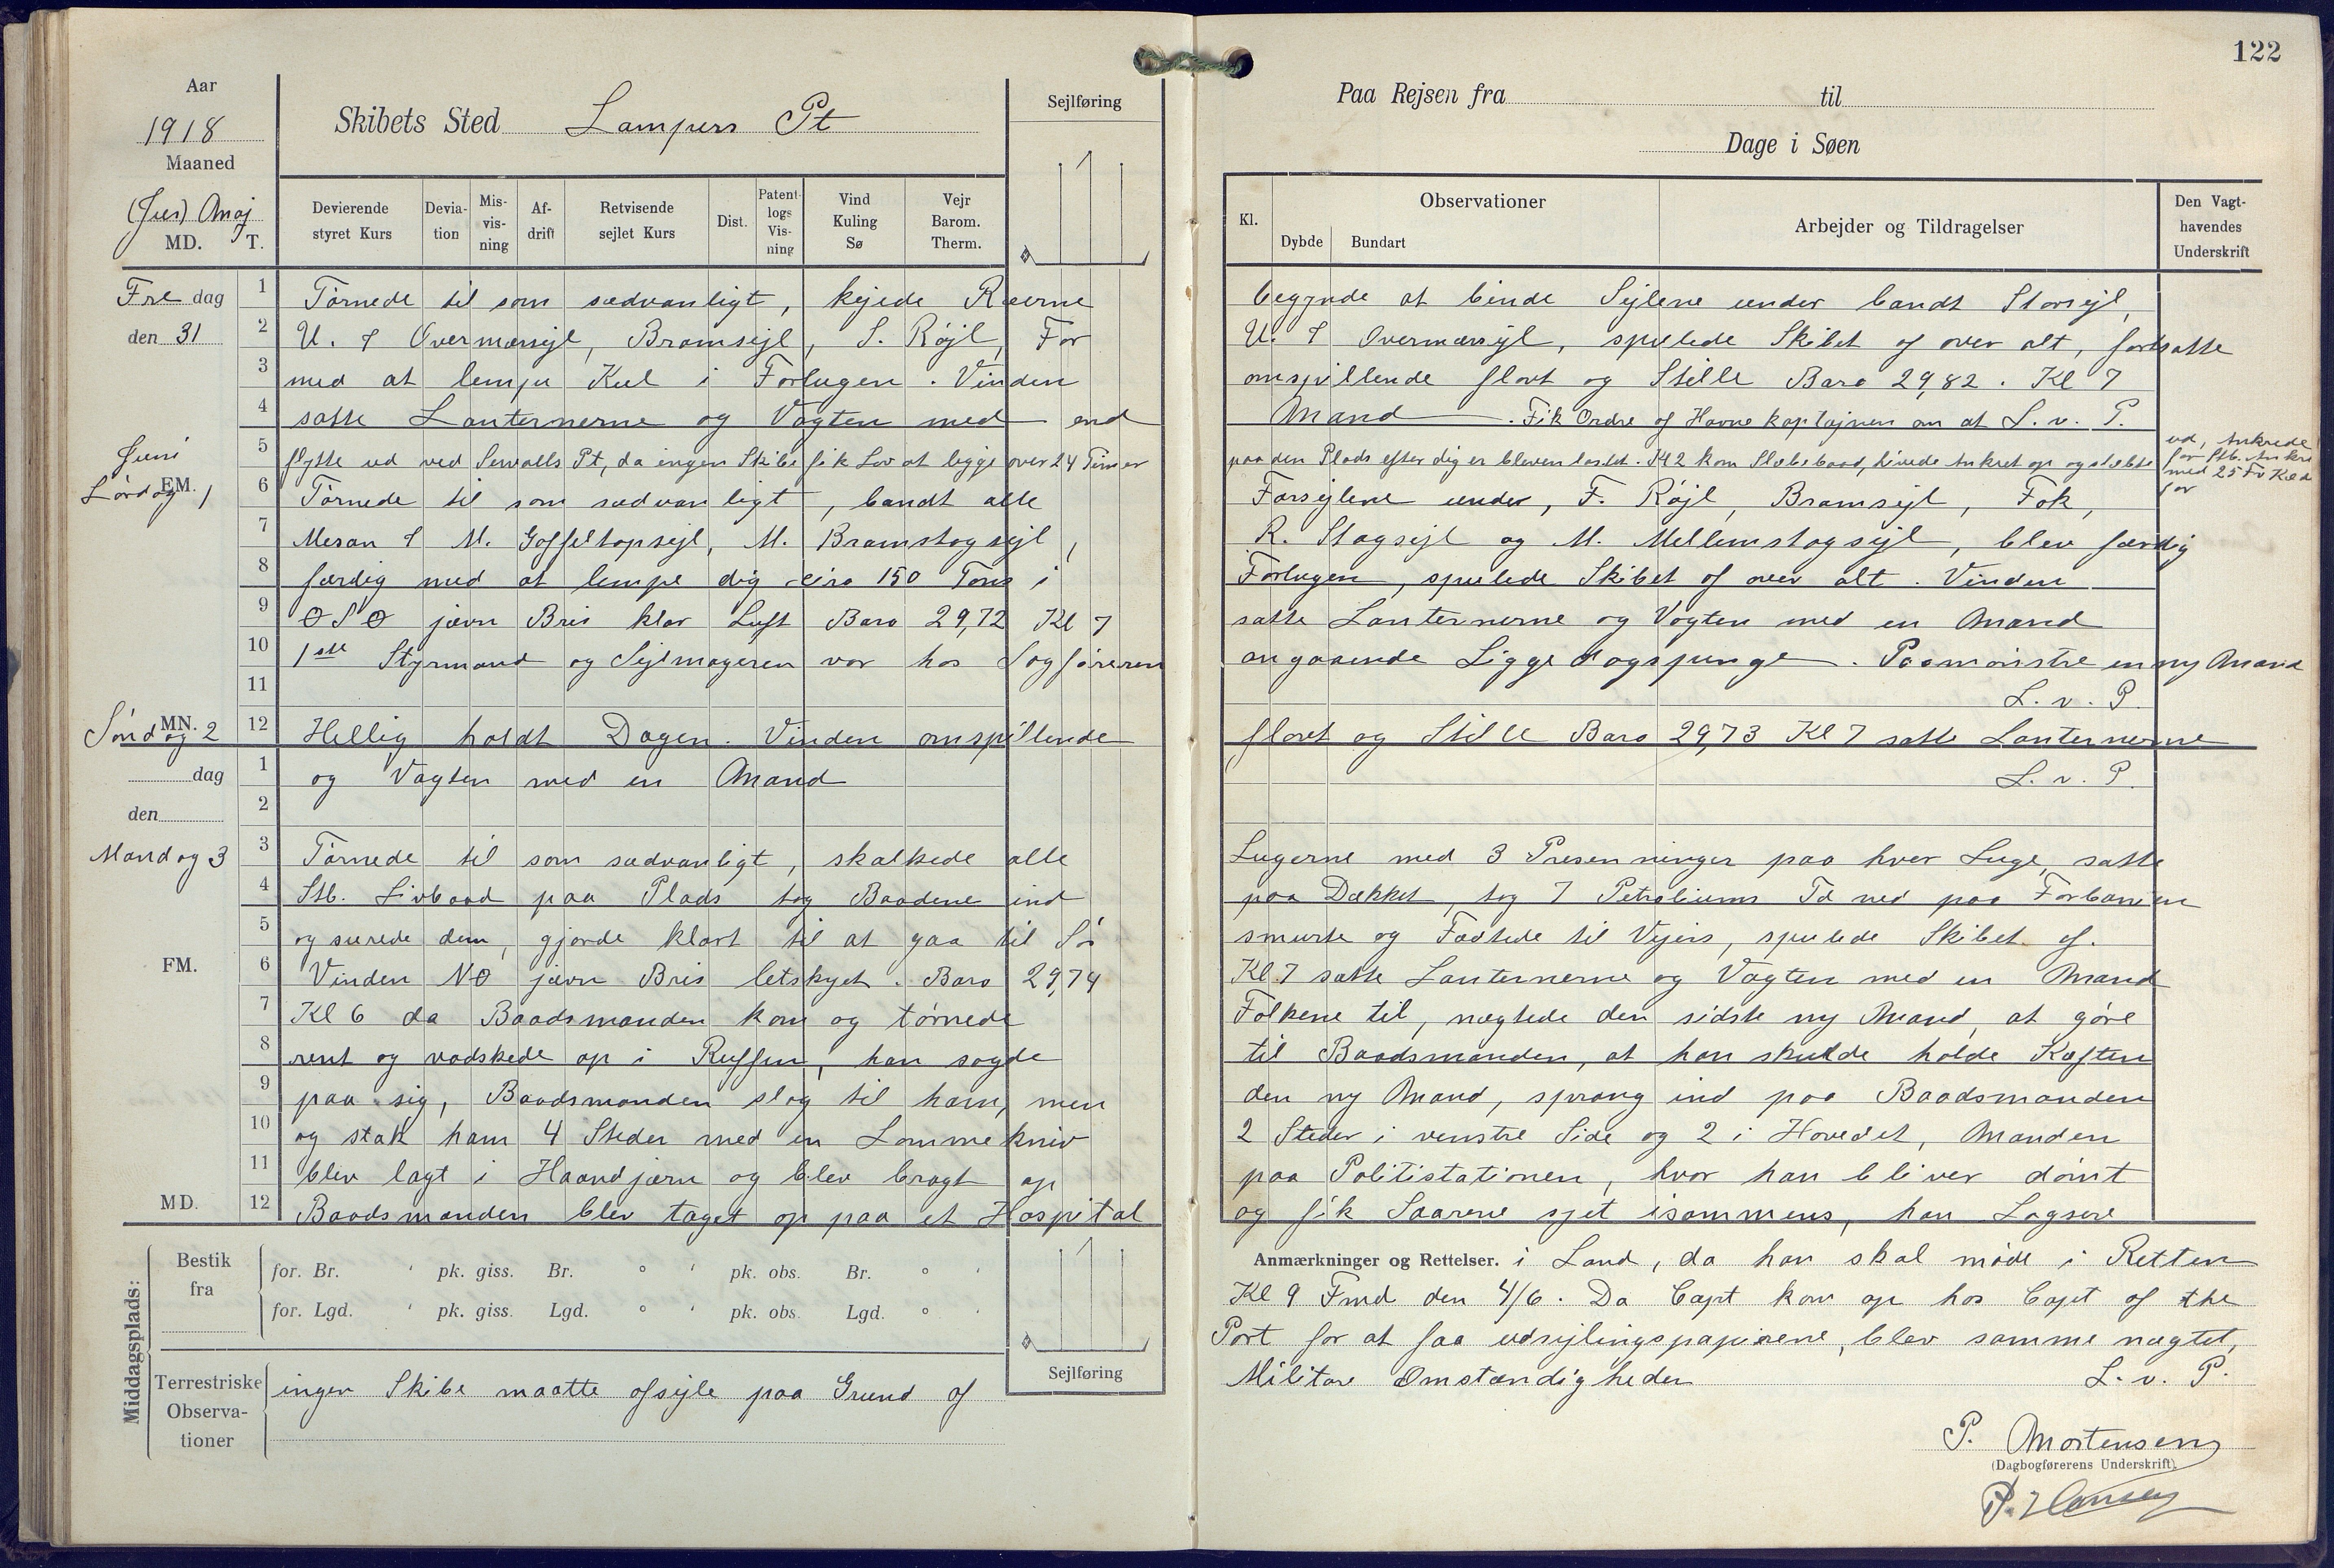 122
Aar
1918
Maaned
(Juni) Maj
MD. T.
Skibets Sted Lampers Pt
Sejlføring
Devierende styret Kurs
Devia-tion
Mis-vis-ning
Af-drift
Retvisende sejlet Kurs
Dist.
Patent-logs Vis-ning
Vind Kuling Sø
Vejr Barom. Therm.
Fre dag den 31
1 Törnede til som sædvanligt, kejede Ræerne
2 U. & Overmærsejl, Bramsejl, S. Röjl, For
3 med at lempe Kul i Forlugen. Vinden
4 satte Lanternerne og Vagten med end
Juni
5 flytte ud ved Sewalls Pt, da ingen Skibe fik Lov at ligge over 24 Timer
EM.
Lørdag 1
6 Törnede til som sædvanligt, bandt alle
7 Mesan & M. Gaffeltopsejl, M. Bramstagsejl,
8 færdig med at lempe dig circa 150 Tons i
9 OSO jævn Bris klar Luft Baro 29,72 Kl 7
10 1ste Styrmand og Sejlmageren var hos Sagføreren
11
MN.
Söndag 2
12 Hellig holdt Dagen. Vinden omspillende
dag
1 og Vagten med en Mand
den
2
Mandag 3
3 Törnede til som sædvanligt, skalkede alle
4 Stb. Livbaad paa Plads tog Baadene ind
5 og surede dem, gjorde klart til at gaa til Sö
FM.
6 Vinden NO jævn Bris letskyet. Baro 29,74
7 Kl 6 da Baadsmanden kom og törnede
8 rent og vadskede op i Ruffen, han sagde
9 paa sig, Baadsmanden slog til ham, men
10 og stak ham 4 Steder med en Lommekniv
11 blev lagt i Haandjærn og blev bragt op
MD.
12 Baadsmanden blev taget op paa et Hospital
Middagsplads:
Bestik fra
for. Br. ' pk. giss. Br. ° ' pk. obs. Br. ° '
for. Lgd. ' pk. giss. Lgd. ° ' pk. obs. Lgd. ° '
Sejlføring
Terrestriske Observa-tioner
ingen Skibe maatte afsejle paa Grund af
Paa Rejsen fra til
Dage i Søen
Kl.
Observationer
Dybde
Bundart
Arbejder og Tildragelser
Den Vagt-havendes Underskrift
begynde at binde Sejlene under bandt Storsejl,
U. & Overmærsejl, spulede Skibet af over alt, fortsatte
omspillende flovt og Stille Baro 29,82. Kl 7
Mand. Fik Ordre af Havnekaptajnen om at L. v. P.
paa den Plads efter dig er bleven lastet. Kl 2 kom Slæbebaad, hivede Ankret op og slæbte
ud, Ankrede
for Stb. Anker
med 25 Fv Kæde
for
Forsejlene under, F. Röjl, Bramsejl, Fok,
R. Stagsejl og M. Mellemstagsejl, blev færdig
Forlugen, spulede Skibet af over alt. Vinden
satte Lanternerne og Vagten med en Mand
angaaende Liggedagspenge. Paamönstre en ny Mand
L. v. P.
flovt og Stille Baro 29,73 Kl 7 satte Lanternerne
L. v. P.
Lugerne med 3 Presenninger paa hver Luge, satte
paa Dækket, tog 7 Petroliums Td ned paa Forbanjen
smurte og Fadtede til Vejrs, spulede Skibet af.
Kl. 7 satte Lanternerne og Vagten med en Mand
Folkene til, nægtede den sidste ny Mand, at göre
til Baadsmanden, at han skulde holde Kæften
den ny Mand, sprang ind paa Baadsmanden
2 Steder i venstre Side og 2 i Hovedet, Manden
paa Politistationen, hvor han bliver dömt
og fik Saarene syet isammens, han Logsere
Anmærkninger og Rettelser. i Land, da han skal möde i Retten
Kl 9 Fmd den 4/6. Da Capt kom op hos Capt of the
Port for at faa udsejlingspapirene, blev samme nægtet,
Militære Omstændigheder L. v. P.
P. Mortensen
(Dagbogførerens Underskrift).
P. Hansen